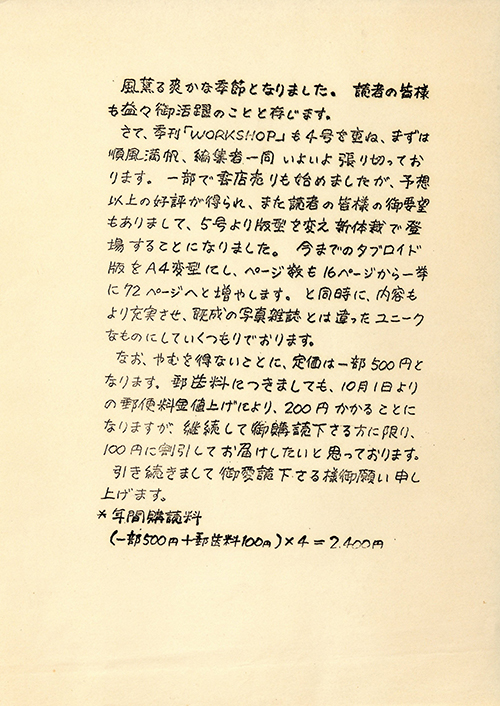 風薫る爽かな季節となりました。 読者の皆様
も益々御活躍のことと存じます。
さて、季刊「WORKSHOP」も4号を重ね、まずは
順風満帆、編集者一同 いよいよ張り切ってお
ります。 一部で書店売りも始めましたが、予想
以上の好評が得られ、また読者の皆様の御要望
もありまして、5号より版型を変え新体裁で登
場することになりました。 今までのタブロイド
版をA4変型にし、ページ数も16ページから一挙
に72ページへと増やします。 と同時に、内容も
より充実させ、既成の写真雑誌とは違ったユニーク
なものにしていくつもりでおります。
なお、やむを得ないことに、定価は一部500円と
なります。 郵送料につきましても、10月1日より
の郵便料金値上げにより、200円かかることに
なりますが、継続して御購読下さる方に限り、
100円に割引してお届けしたいと思っております。
引き続きまして御愛読下さる様御願い申し
上げます。
*年間購読料
(一部500円+郵送料100円)×4=2,400円